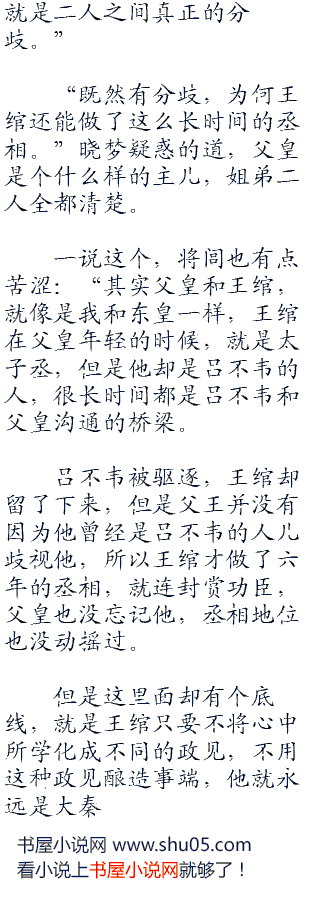 就是二人之间真正的分
歧。”
“既然有分歧，为何王
绾还能做了这么长时间的丞
相。”晓梦疑惑的道，父皇
是个什么样的主儿，姐弟二
人全都清楚。
一说这个，将闾也有点
苦涩：“其实父皇和王绾，
就像是我和东皇一样，王绾
在父皇年轻的时候，就是太
子丞，但是他却是吕不韦的
人，很长时间都是吕不韦和
父皇沟通的桥梁。
吕不韦被驱逐，王绾却
留了下来，但是父王并没有
因为他曾经是吕不韦的人儿
歧视他，所以王绾才做了六
年的丞相，就连封赏功臣，
父皇也没忘记他，丞相地位
也没动摇过。
但是这里面却有个底
线，就是王绾只要不将心中
所学化成不同的政见，不用
这种政见酿造事端，他就永
远是大秦
书屋小说网 www.shu05.com
看小说上书屋小说网就够了！